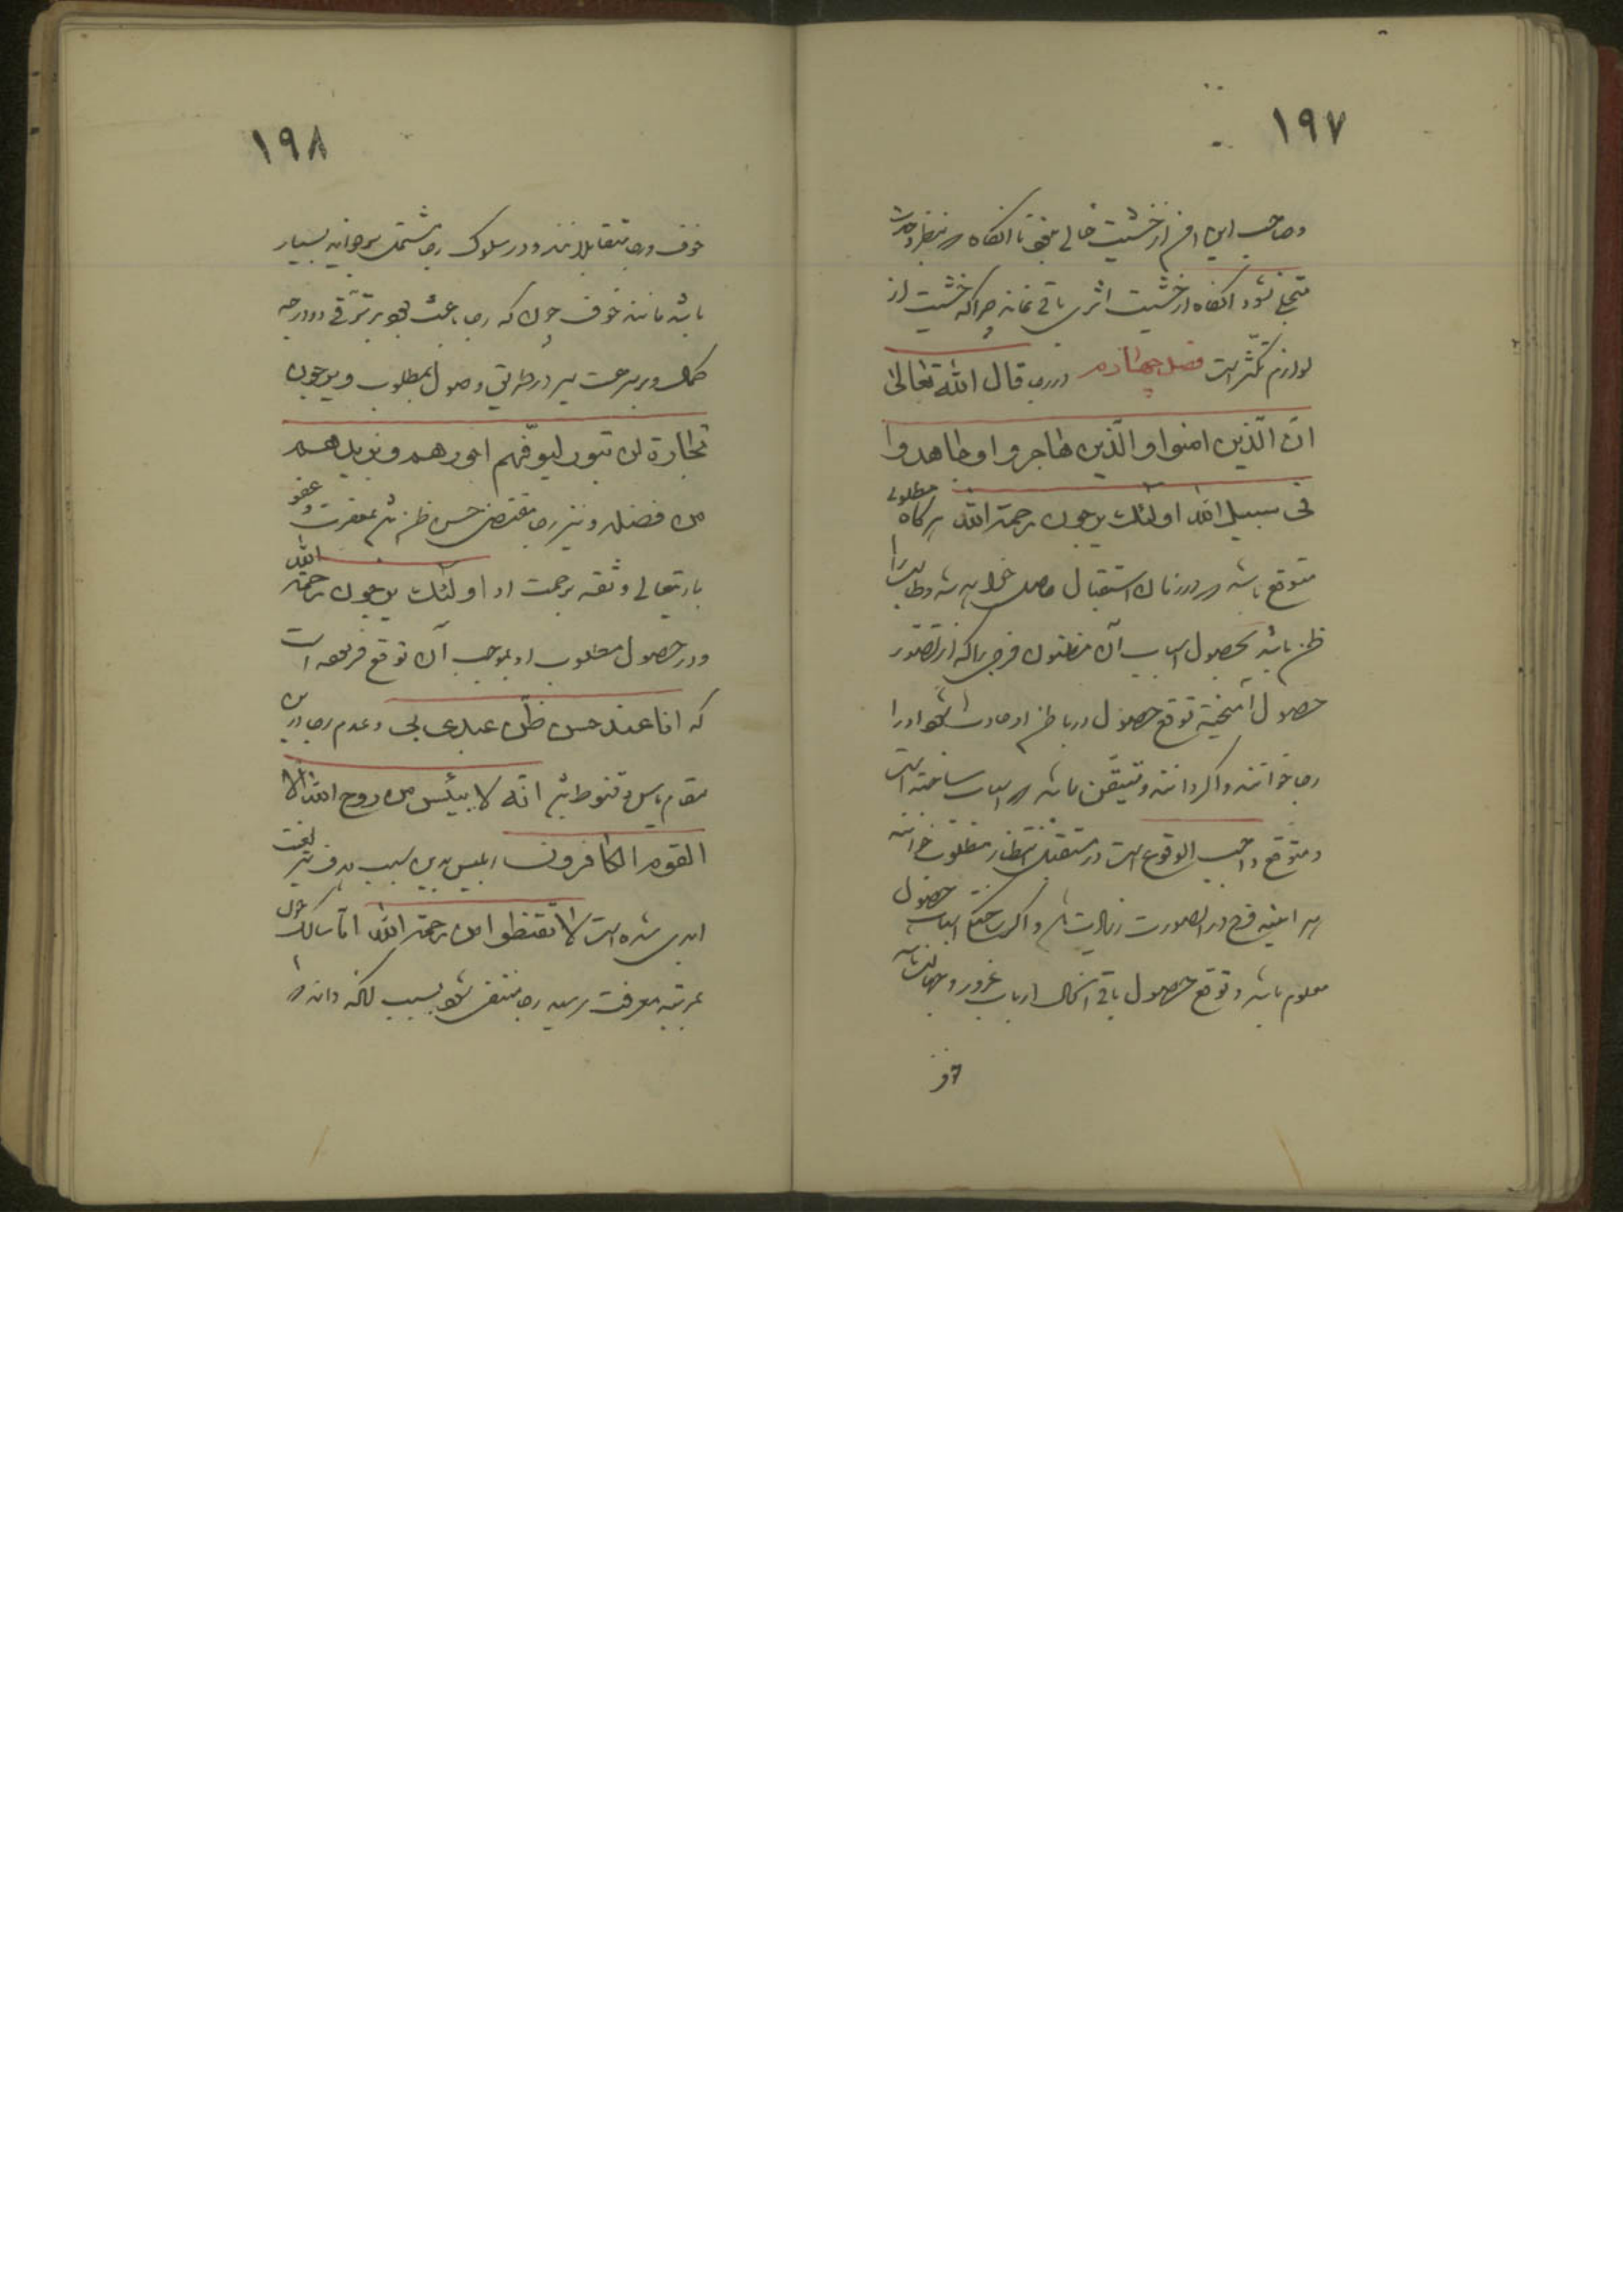 ۱۹۷
وصاحب این از خشیت خالی نبود تا آنگاه که بنظر وحدت
متجلی شود آنگاه از خشیت اثری باقی نماند چرا که خشیت از
لوازم تکثر است فصل چهارم در رجا قال الله تعالی
ان الّذین امنوا و الّذین هاجروا و جاهدوا
فی سبیل الله اولئک یرجون رحمة الله هرگاه مطلوبی
متوقع باشد که در زمان استقبال حاصل خواهد شد و طالب را
ظن باشد بحصول اسباب آن مطلوب فرحی که از تصور
حصول آمیخته توقع حصول در باطن او حادث شود او را
رجا خوانند و اگر دانند و متیقن باشد که اسباب ساخته است
و متوقع واجب الوقوع است در مستقبل انتظار مطلوب خوانند
هر آینه فرح در آنصورت زیادت باشد و اگر ساختگی اسباب حصول
معلوم نباشد و توقع حصول باقی ارباب غرور و
خوف
۱۹۸
خوف و رجا متقابلانند و در سلوک رجا مشتمل بر فواید بسیار
باشد مانند خوف چون که رجا باعث بود بر ترقی در درجه
کمال و بر سرعت سیر در طریق وصول بمطلوب و یرجون
تجارة لن تبور لیوفّیهم اجورهم و یزیدهم
من فضله و نیز رجا مقتضی حسن ظن باشد بمغفرت و عفو
باریتعالی و ثقه برحمت او اولئک یرجون رحمة الله
و در حصول مطلوب او بموجب آن توقع فرموده است
که انا عند حسن ظنّ عبدی بی و عدم رجا در این
مقام یأس و قنوط باشد انّه لا ییئس من روح الله الا
القوم الکافرون ابلیس بدین سبب هدف تیر لعنت
ابدی شده است لا تقنطوا من رحمة الله اما سالک چون
بمرتبه معرفت رسید رجا منتفی شود بسبب آنکه داند که